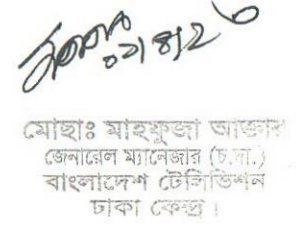 ০২/৪/২৩
মোছাঃ মাহফুজা আক্তার
জেনারেল ম্যানেজার (চ.দা.)
বাংলাদেশ টেলিভিশন
ঢাকা কেন্দ্র।